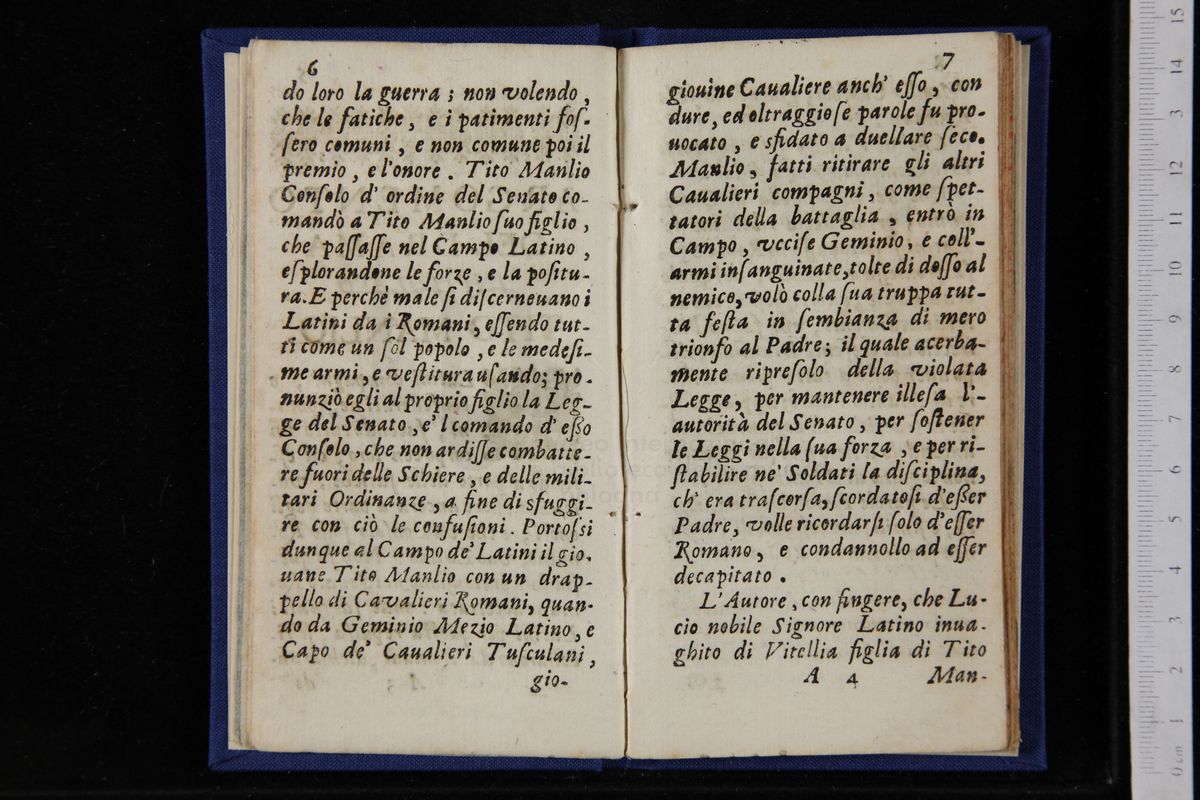 6
do loro la guerra ; non volendo ,
che le fatiche , e i patimenti foſ-
ſero comuni , e non comune poi il
premio , e l'onore . Tito Manlio
Conſolo d' ordine del Senato co-
mandò a Tito Manlio ſuo figlio ,
che paſſaſſe nel Campo Latino ,
eſplorandone le forze , e la poſitu-
ra. E perchè male ſi diſcerneuano i
Latini da i Romani , eſſendo tut-
ti come un ſol popolo , e le medeſi-
me armi , e veſtitura uſando; pro-
nunziò egli al proprio figlio la Leg-
ge del Senato , e'l comando d' eßo
Conſolo , che non ardiſſe combatte-
re fuori delle Schiere , e delle mili-
tari Ordinanze , a fine di sfuggi-
re con ciò le confuſioni . Portoſsi
dunque al Campo de' Latini il gio-
uane Tito Manlio con un drap-
pello di Cavalieri Romani, quan-
do da Geminio Mezio Latino , e
Capo de' Caualieri Tuſculani ,
gio-
7
giouine Caualiere anch' eſſo , con
dure, ed oltraggioſe parole fu pro-
uocato , e sfidato a duellare ſeco.
Manlio , fatti ritirare gli altri
Caualieri compagni , come ſpet-
tatori della battaglia , entrò in
Campo , vcciſe Geminio , e coll'-
armi inſanguinate, tolte di doſſo al
nemico, volò colla ſua truppa tut-
ta feſta in ſembianza di mero
trionfo al Padre ; il quale acerba-
mente ripreſolo della violata
Legge, per mantenere illeſa l'-
autorità del Senato, per ſoſtener
le Leggi nella ſua forza , e per ri-
ſtabilire ne' Soldati la diſciplina,
ch' era traſcorſa, ſcordatoſi d'eßer
Padre, volle ricordarſi ſolo d'eſſer
Romano, e condannollo ad eſſer
decapitato .
L'Autore , con fingere, che Lu-
cio nobile Signore Latino inua-
ghito di Vitellia figlia di Tito
A 4 Man-